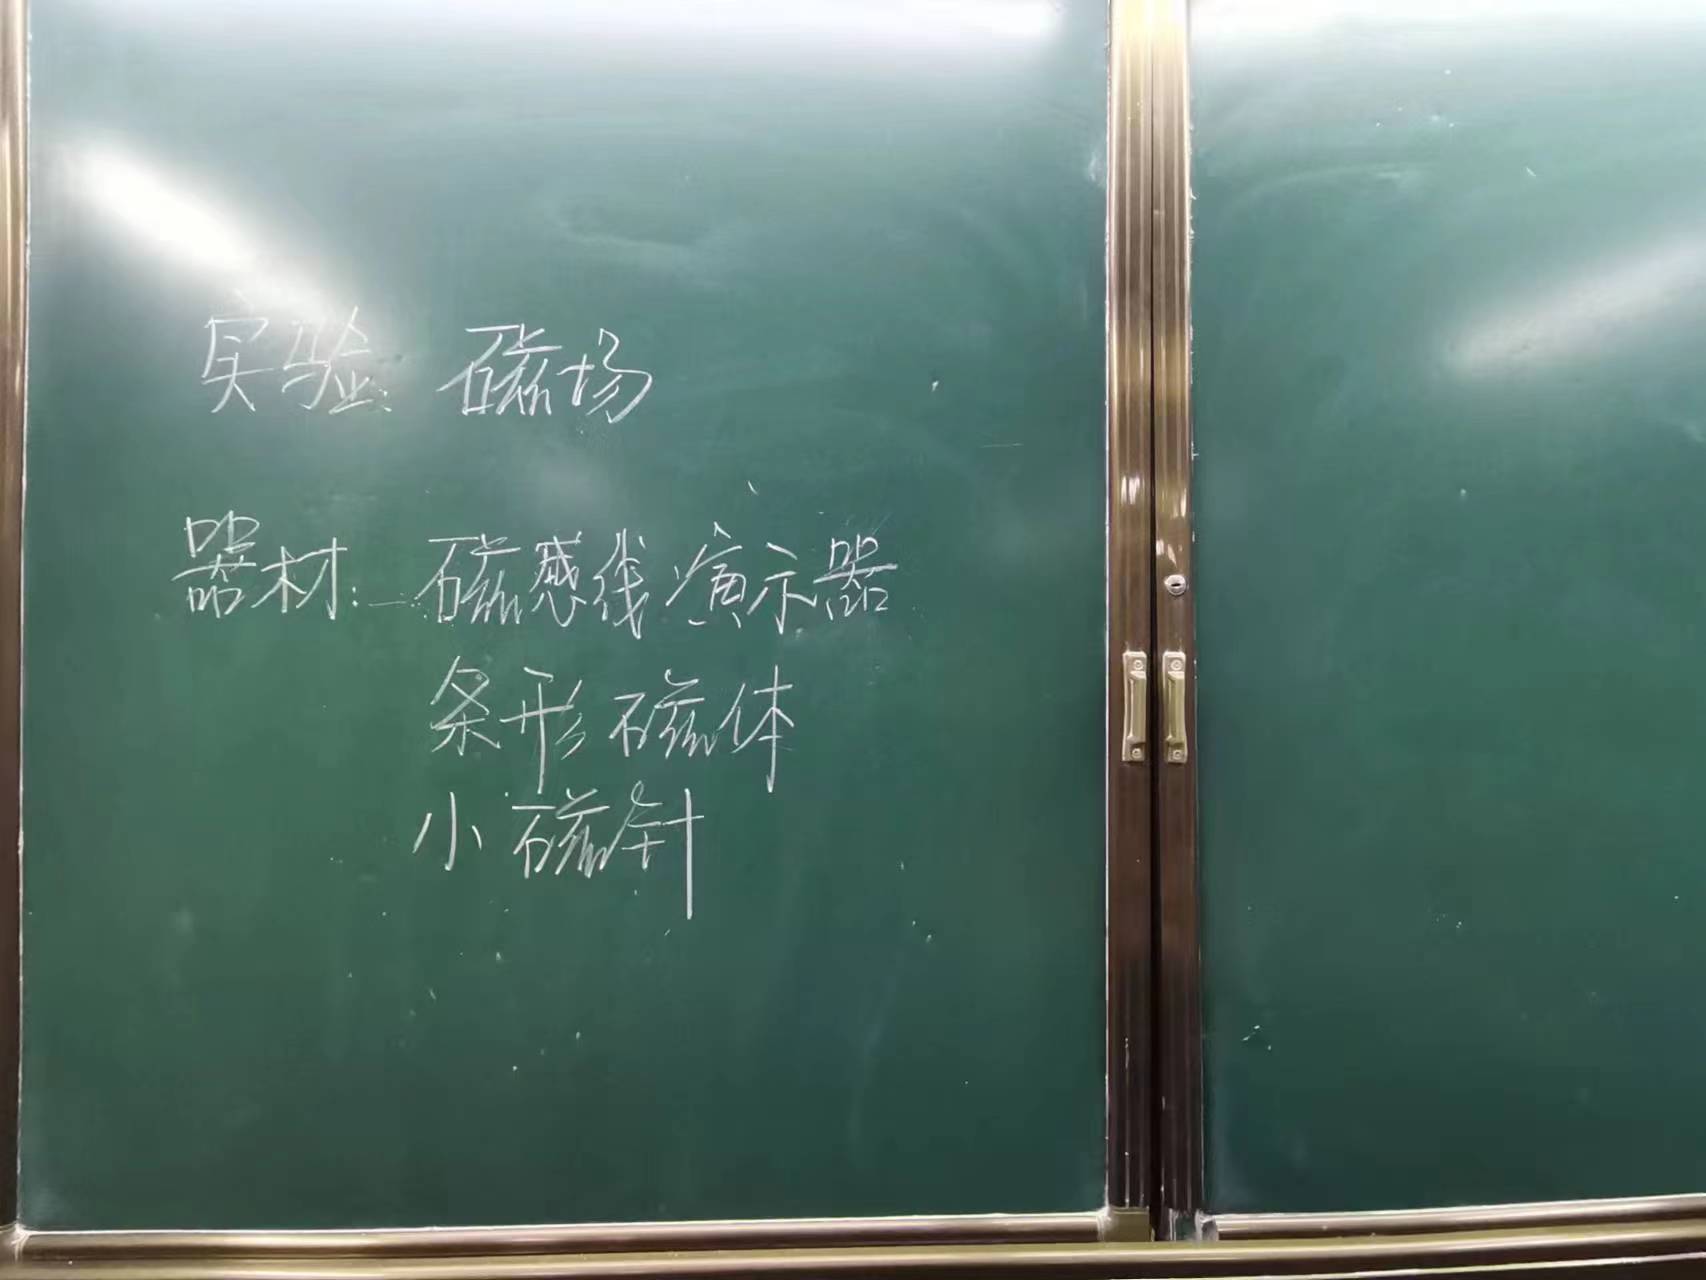 实验: 磁场
器材: 磁感线演示器
条形磁体
小磁针